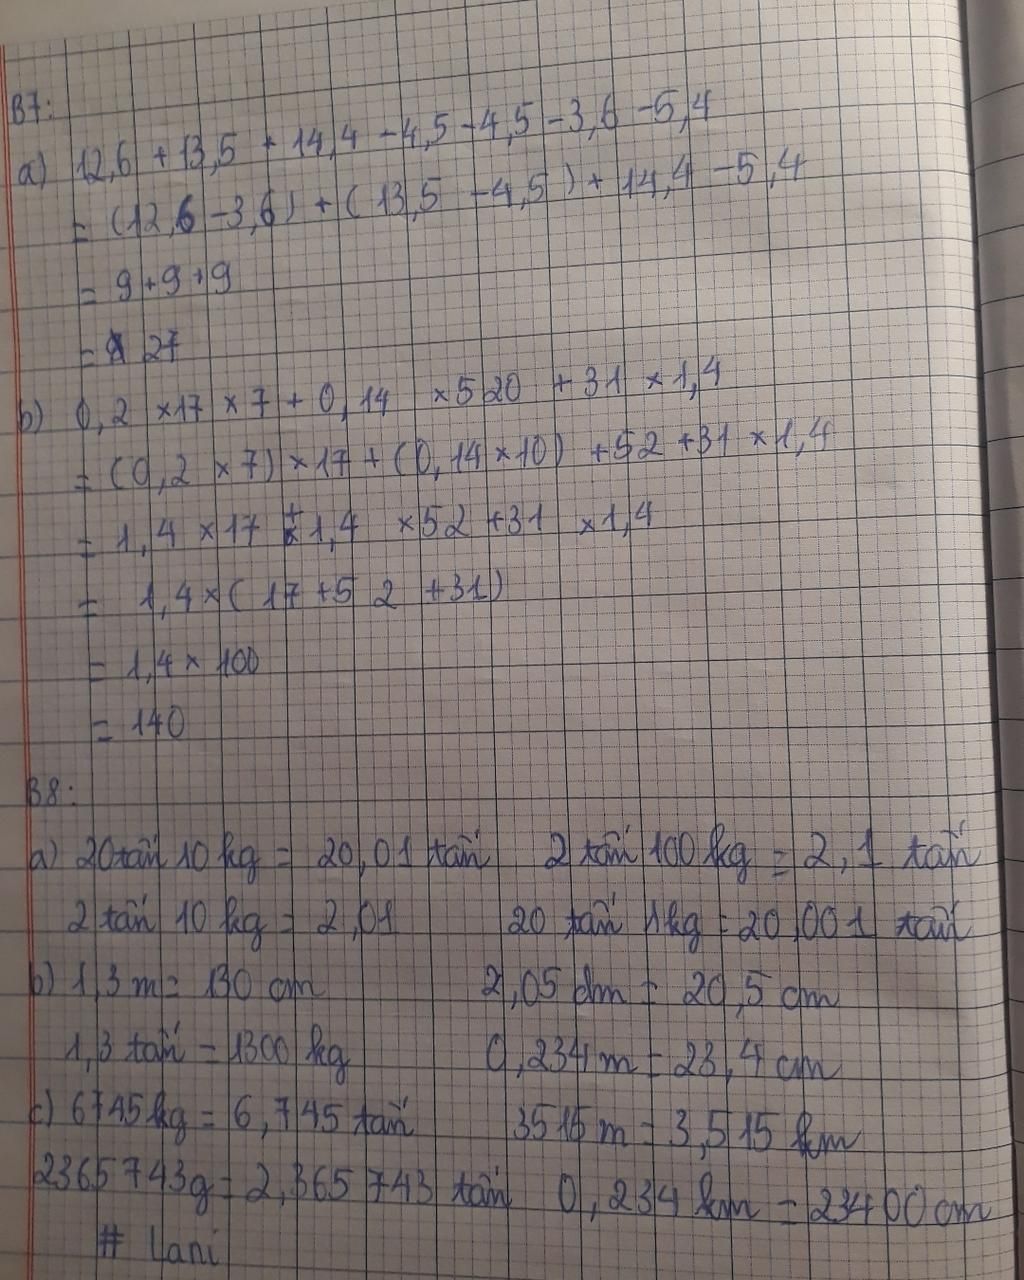 B7:
a) 12,6 + 13,5 + 14,4 - 4,5 - 4,5 - 3,6 - 5,4
= (12,6 - 3,6) + (13,5 - 4,5) + 14,4 - 5,4
= 9 + 9 + 9
= 27
b) 0,2 × 17 × 7 + 0,14 × 520 + 31 × 1,4
= (0,2 × 7) × 17 + (0,14 × 10) + 52 + 31 × 1,4
= 1,4 × 17 + 1,4 × 52 + 31 × 1,4
= 1,4 × (17 + 52 + 31)
= 1,4 × 100
= 140
B8:
a) 20 tấn 10 kg = 20,01 tấn 2 tấn 100 kg = 2,1 tấn
2 tấn 10 kg = 2,01 20 tấn 1kg = 20,001 tấn
b) 1,3 m = 130 cm 2,05 dm = 20,5 cm
1,3 tấn = 1300 kg 0,234 m = 23,4 cm
c) 6745 kg = 6,745 tấn 3515 m = 3,515 km
2365743g = 2,365743 tấn 0,234 km = 23400 cm
# Yani